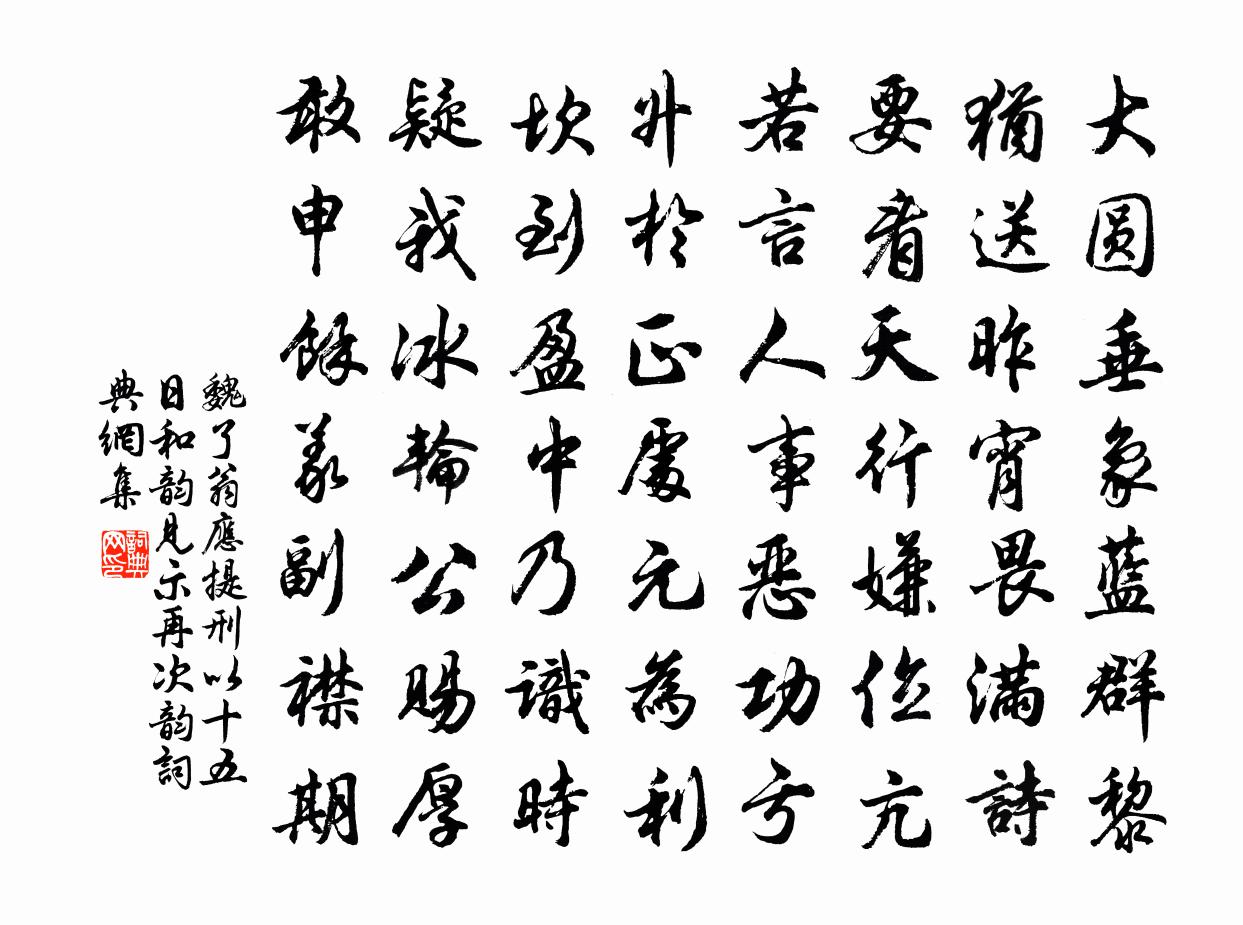 大圓垂象藍群黎
猶送昨宵畏滿詩
要看天行嫌位亢
若言人事惡功亏
升於正處元為利
坎到盈中乃識時
疑我冰輪公賜厚
敢申餘義副襟期
魏了翁應提刑以十五
日和韵見示再次韵詞
典網集
詞典网印